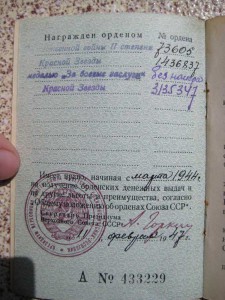 Награжден орденом
№ ордена
Отечественной войны II степени 73605
Красной Звезды 1436837
медалью „За боевые заслуги" без номера
Красной Звезды 3135347
Имеет право, начиная с марта 1944 г.
на получение орденских денежных выдач и
на другие льготы и преимущества, согласно
„Общего положения об орденах Союза ССР".
Секретарь Президиума
Верховного Совета СССР
А. Горкин
11 февраля 1947 г.
А № 433229